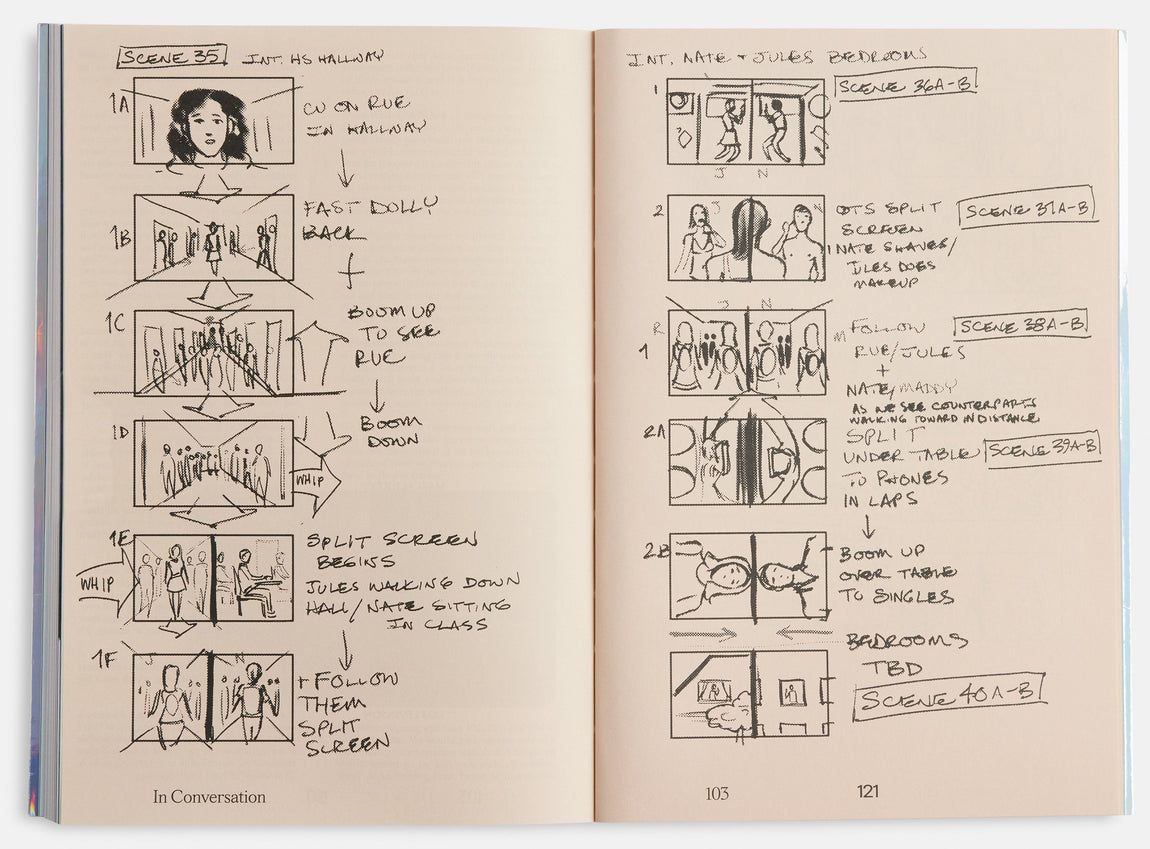 SCENE 35 INT. HS HALLWAY
1A
CU ON RUE
IN HALLWAY
1B
FAST DOLLY
BACK
+
1C
BOOM UP
TO SEE
RUE
1D
BOOM
DOWN
WHIP
1E
WHIP
SPLIT SCREEN
BEGINS
JULES WALKING DOWN
HALL/NATE SITTING
IN CLASS
1F
J N
+ FOLLOW
THEM
SPLIT
SCREEN
In Conversation
INT. NATE + JULES BEDROOMS
1
SCENE 36A-B
J N
2
J N
OTS SPLIT
SCREEN
NATE SHAVES/
JULES DOES
MAKEUP
SCENE 37A-B
J N
R M
1
FOLLOW
RUE/JULES
+
NATE/MADDY
AS WE SEE COUNTERPARTS
WALKING TOWARD IN DISTANCE
SCENE 38A-B
2A
SPLIT
UNDER TABLE
TO PHONES
IN LAPS
SCENE 39A-B
2B
BOOM UP
OVER TABLE
TO SINGLES
BEDROOMS
TBD
SCENE 40A-B
103
121